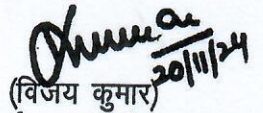 20/11/24
(विजय कुमार)